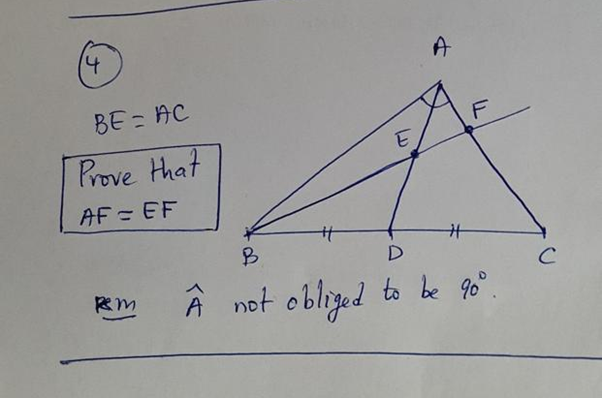 4
A
BE = AC
F
E
Prove that
AF = EF
B
D
C
Rem Â not obliged to be 90°.